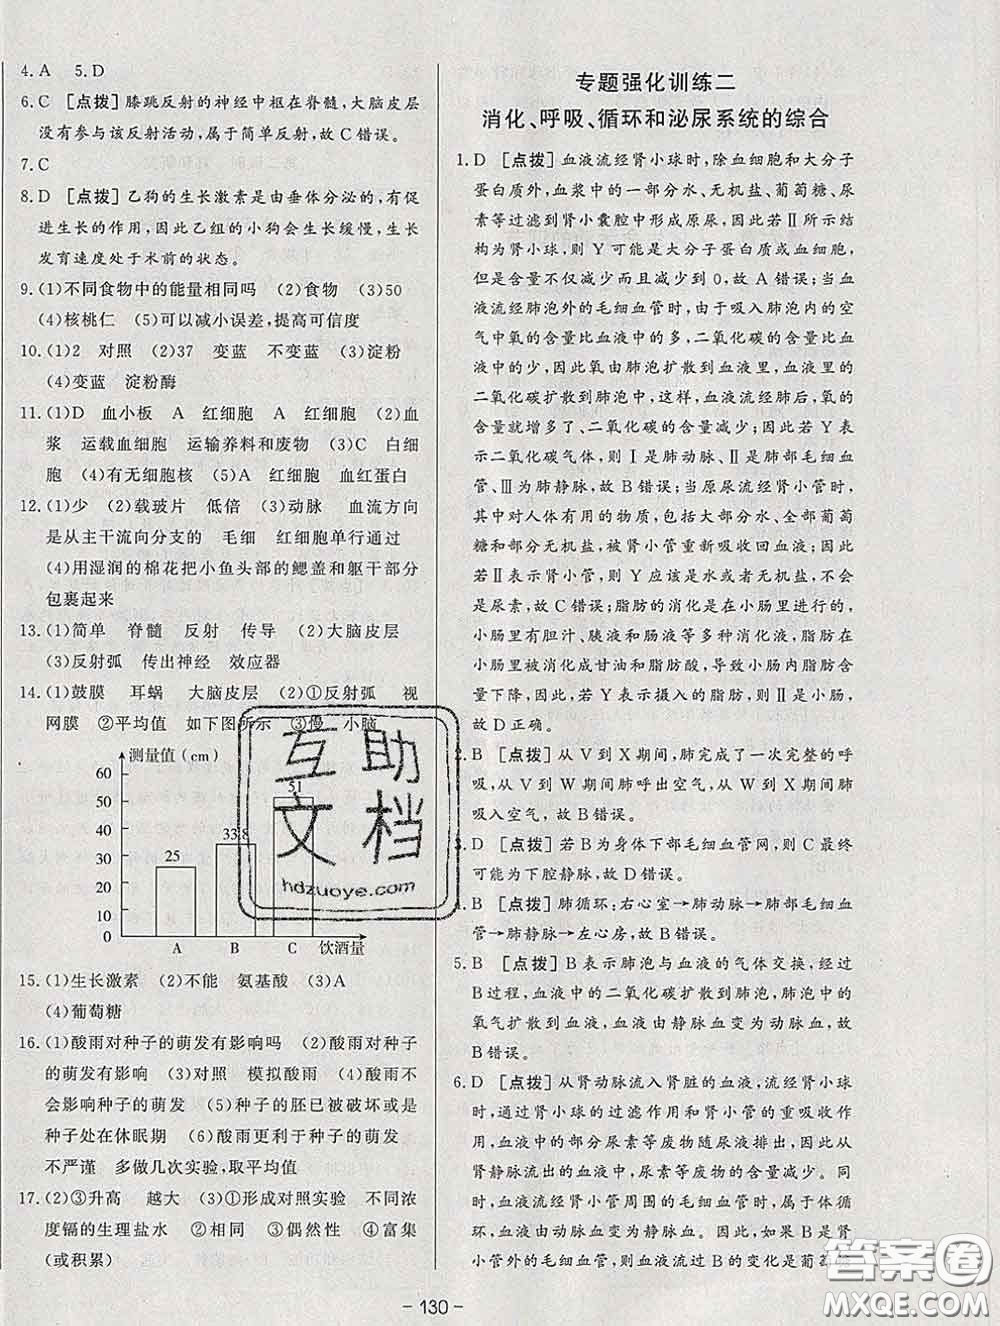 4. A　5. D
6. C　[点拨]膝跳反射的神经中枢在脊髓,大脑皮层
没有参与该反射活动,属于简单反射,故 C 错误。
7. C
8. D　[点拨]乙狗的生长激素是由垂体分泌的,有促
进生长的作用,因此乙组的小狗会生长缓慢,生长
发育速度处于术前的状态。
9. (1)不同食物中的能量相同吗　(2)食物　(3)50
(4)核桃仁　(5)可以减小误差,提高可信度
10. (1)2　对照　(2)37　变蓝　不变蓝　(3)淀粉
(4)变蓝　淀粉酶
11. (1)D　血小板　A　红细胞　A　红细胞　(2)血
浆　运载血细胞　运输养料和废物　(3)C　白细
胞　(4)有无细胞核　(5)A　红细胞　血红蛋白
12. (1)少　(2)载玻片　低倍　(3)动脉　血流方向
是从主干流向分支的　毛细　红细胞单行通过
(4)用湿润的棉花把小鱼头部的鳃盖和躯干部分
包裹起来
13. (1)简单　脊髓　反射　传导　(2)大脑皮层
(3)反射弧　传出神经　效应器
14. (1)鼓膜　耳蜗　大脑皮层　(2)①反射弧　视
网膜　②平均值　如下图所示　③慢　小脑
测量值(cm)
60
50
40
30
20
10
0
25
33.8
51
A
B
C
饮酒量
15. (1)生长激素　(2)不能　氨基酸　(3)A
(4)葡萄糖
16. (1)酸雨对种子的萌发有影响吗　(2)酸雨对种子
的萌发有影响　(3)对照　模拟酸雨　(4)酸雨
会影响种子的萌发　(5)种子的胚已被破坏或是
种子处在休眠期　(6)酸雨更利于种子的萌发
不严谨　多做几次实验,取平均值
17. (2)③升高　越大　(3)①形成对照实验　不同浓
度镉的生理盐水　②相同　③偶然性　④富集
(或积累)
专题强化训练二
消化、呼吸、循环和泌尿系统的综合
1. D　[点拨]血液流经肾小球时,除血细胞和大分子
蛋白质外,血浆中的一部分水、无机盐、葡萄糖、尿
素等过滤到肾小囊腔中形成原尿,因此若Ⅱ所示结
构为肾小球,则 Y 可能是大分子蛋白质或血细胞,
但是含量不仅减少而且减少到 0,故 A 错误;当血
液流经肺泡外的毛细血管时,由于吸入肺泡内的空
气中氧的含量比血液中的多,二氧化碳的含量比血
液中的少。因此,氧气由肺泡扩散到血液,血液里的
二氧化碳扩散到肺泡中,这样,血液流经肺后,氧的
含量就增多了、二氧化碳的含量减少;因此若 Y 表
示二氧化碳气体,则Ⅰ是肺动脉、Ⅱ是肺部毛细血
管、Ⅲ为肺静脉,故 B 错误;当原尿流经肾小管时,
其中对人体有用的物质,包括大部分水、全部葡萄
糖和部分无机盐,被肾小管重新吸收回血液;因此
若Ⅱ表示肾小管,则 Y 应该是水或者无机盐,不会
是尿素,故 C 错误;脂肪的消化是在小肠里进行的,
小肠里有胆汁、胰液和肠液等多种消化液,能将脂
肪最终消化成甘油和脂肪酸,导致小肠内脂肪含
量下降,因此,若 Y 表示摄入的脂肪,则Ⅱ是小肠,
故 D 正确。
B　[点拨]从 V 到 X 期间,肺完成了一次完整的呼
吸,从 V 到 W 期间肺呼出空气,从 W 到 X 期间肺
吸入空气。故 B 错误。
D　[点拨]若 B 为身体下部毛细血管网,则 C 最终
可能为下腔静脉,故 D 错误。
B　[点拨]肺循环:右心室→肺动脉→肺部毛细血
管→肺静脉→左心房,故 B 错误。
5. B　[点拨]B 表示肺泡与血液的气体交换,经过
B 过程,血液中的二氧化碳扩散到肺泡,肺泡中的
氧气扩散到血液,血液由静脉血变为动脉血。故
B 错误。
6. D　[点拨]从肾动脉流入肾脏的血液,流经肾小球
时,通过肾小球的过滤作用和肾小管的重吸收作
用,血液中的部分尿素等废物随尿液排出,因此从
肾静脉流出的血液中,尿素等废物的含量减少。同
时,血液流经肾小管周围的毛细血管时,属于体循
环,血液由动脉血变为静脉血。因此,如果 B 是肾
小管外的毛细血管,则血液流过 B 的变化是葡萄糖
－130－
互助
文档
hdzuoye.com
答案圈
MXQE.COM